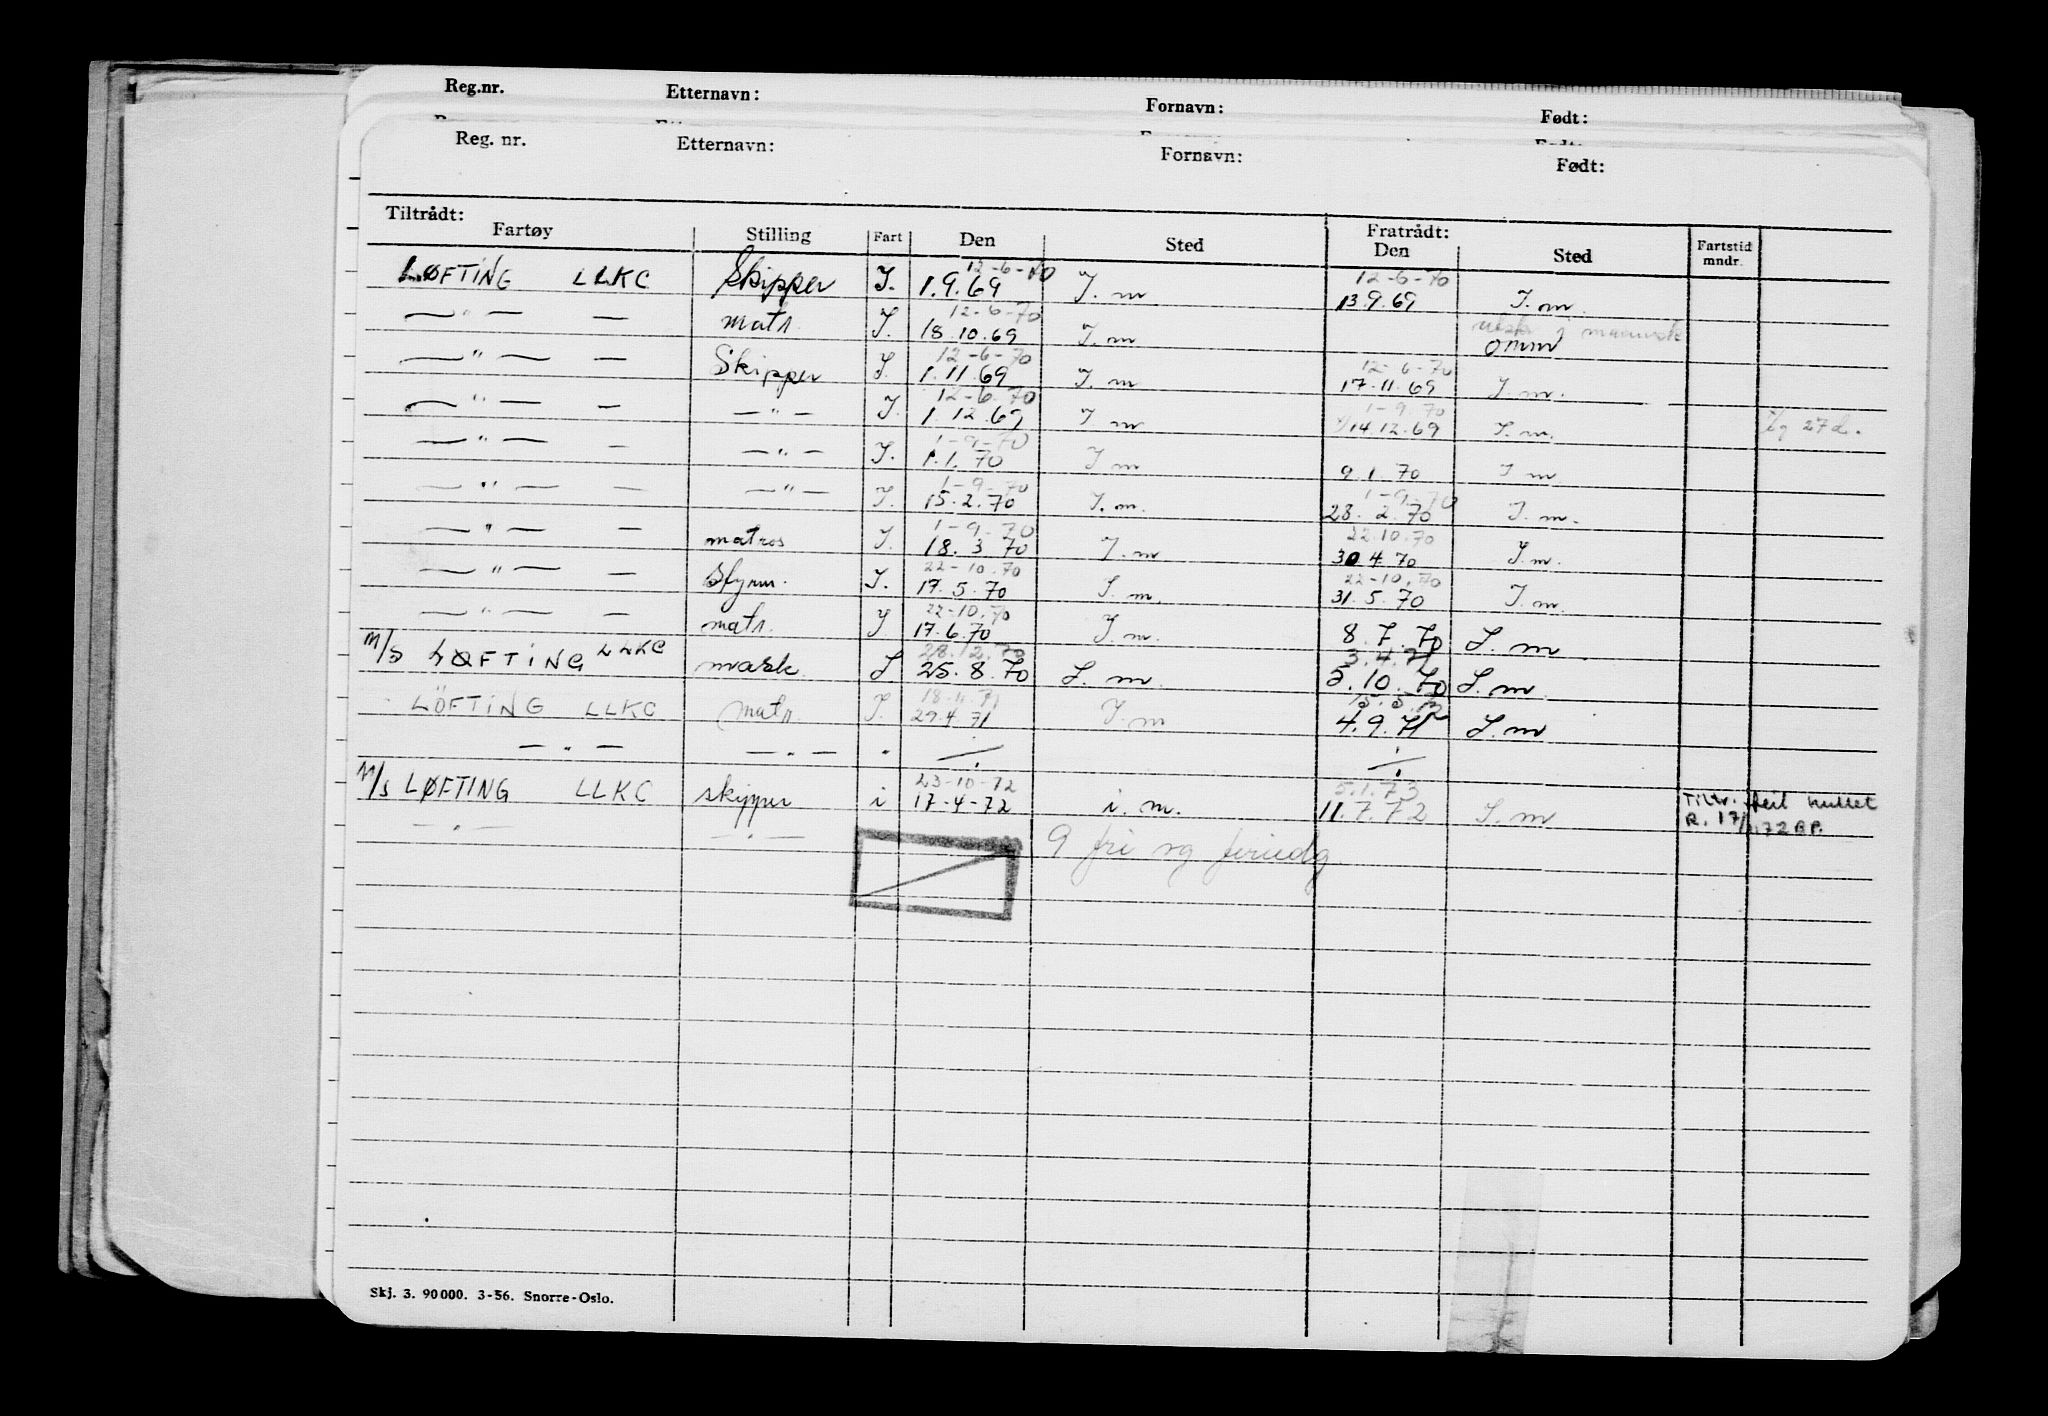 Reg.nr. Etternavn: Fornavn: Født:
Reg. nr. Etternavn: Fornavn: Født:
Tiltrådt: Fratrådt:
Fartøy Stilling Fart Den Sted Den Sted Fartstid mndr.
12-6-70 12-6-70
LØFTING LLKC Skipper I. 1.9.69 I. m 13.9.69 I. m.
12-6-70
— " — — matr. I. 18.10.69 I. m omm
12-6-70 12-6-70
— " — — Skipper I. 1.11.69 I. m 17.11.69 I m.
12-6-70 1-9-70
— " — — — " — I. 1.12.69 I m 14.12.69 I. m. 27 d.
1-9-70
— " — — — " — I. 1.1.70 I m 9.1.70 I m
1-9-70 1-9-70
— " — — — " — I. 15.2.70 I. m. 28.2.70 I. m.
1-9-70 22.10.70
— " — — matros I. 18.3.70 I. m 30.4.70 I. m.
22-10.70 22-10.70
— " — — styrm. I. 17.5.70 I. m. 31.5.70 I. m.
22-10.70
— " — — matr. I 17.6.70 I. m. 8.7.70 I. m
28.12.70 3.4.71
M/S LØFTING LLKC mask. I 25.8.70 I. m. 5.10.70 I. m
18.11.71
LÖFTING LLKC matr. I. 29.4.71 I. m 4.9.71 I. m
— " — — " — "
23-10-72 5.1.73
M/S LØFTING LLKC skipper i 17-4-72 i. m. 11.7.72 I. m Tiltr. feil nullet
— " — — " — 9 fri og feriedg R. 17/ .72 BP.
Skj. 3. 90 000. 3-56. Snorre-Oslo.